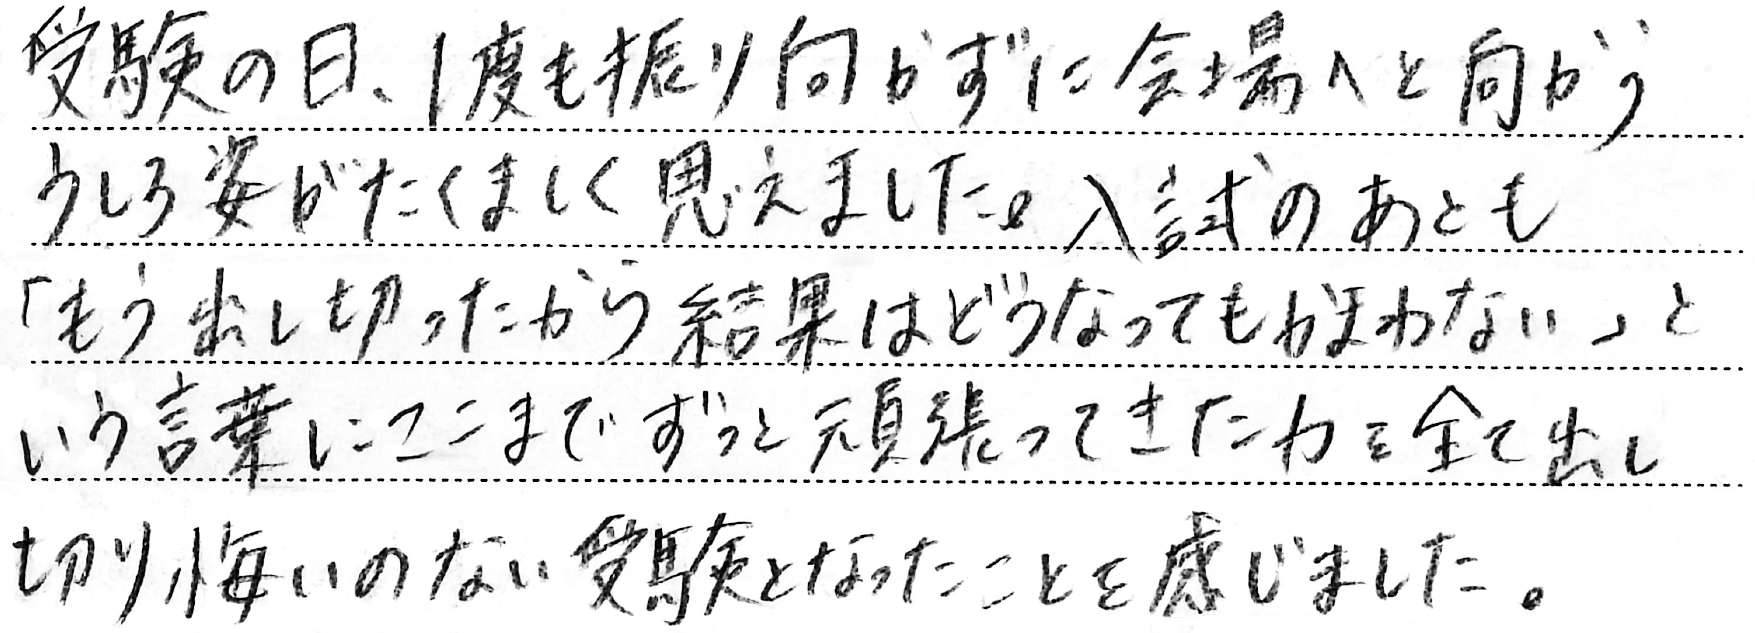 受験の日、1度も振り向かずに会場へと向かう
うしろ姿がたくましく思えました。入試のあとも
「もう出し切ったから結果はどうなってもかまわない」と
いう言葉にここまでずっと頑張ってきた力を全て出し
切り悔いのない受験となったことを感じました。